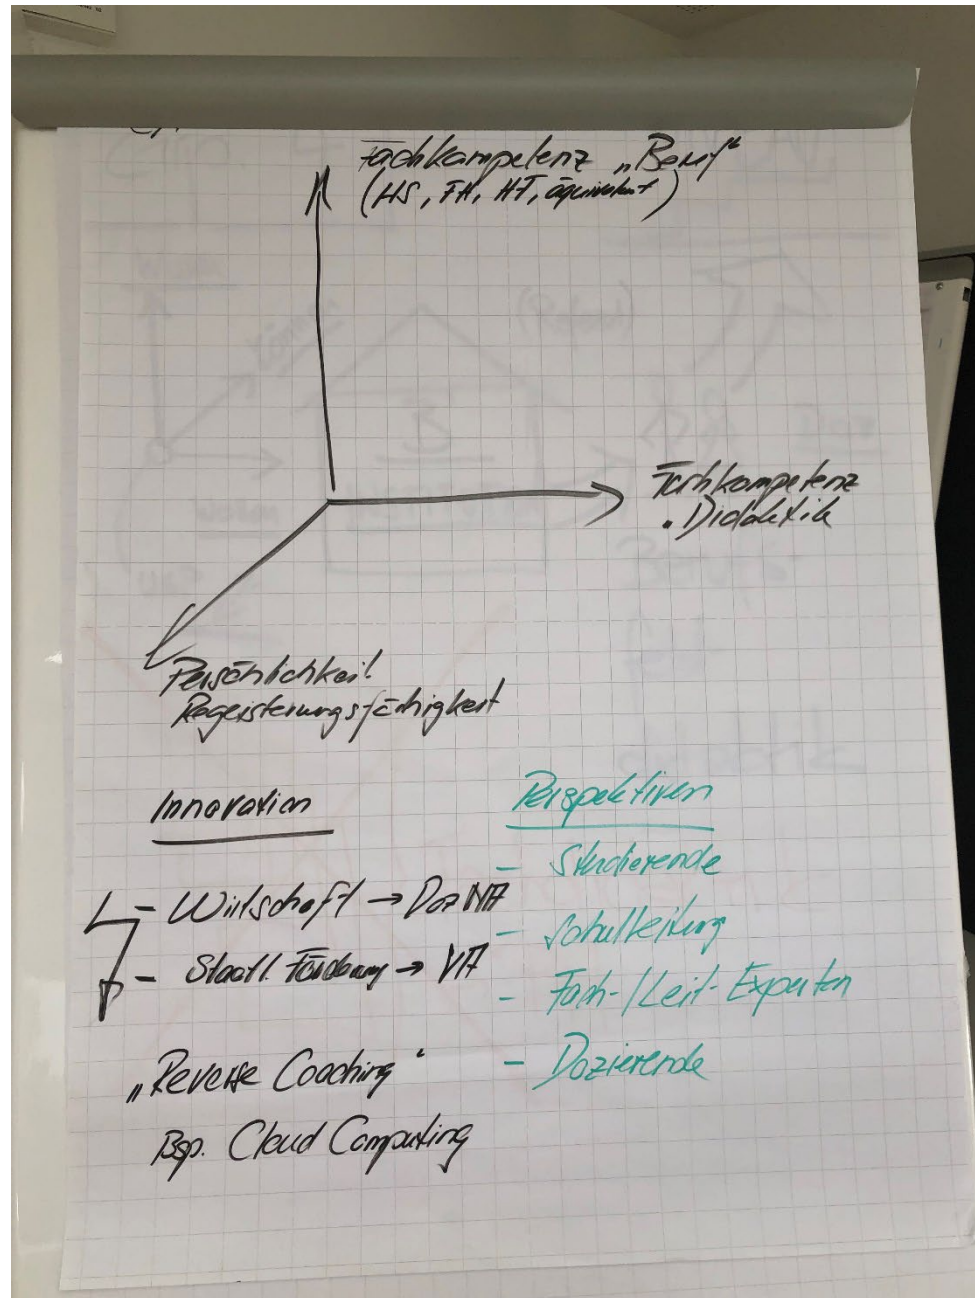 Fachkompetenz „Beruf“
(HS, FH, HF, äquivalent)
Fachkompetenz
„Didaktik
Persönlichkeit
Begeisterungsfähigkeit
Innovation
- Wirtschaft → Doz NA
- Staatl. Förderung → VA
„Reverse Coaching“
Bsp. Cloud Computing
Perspektiven
- Studierende
- Schulleitung
- Fach-/Leit-Experten
- Dozierende